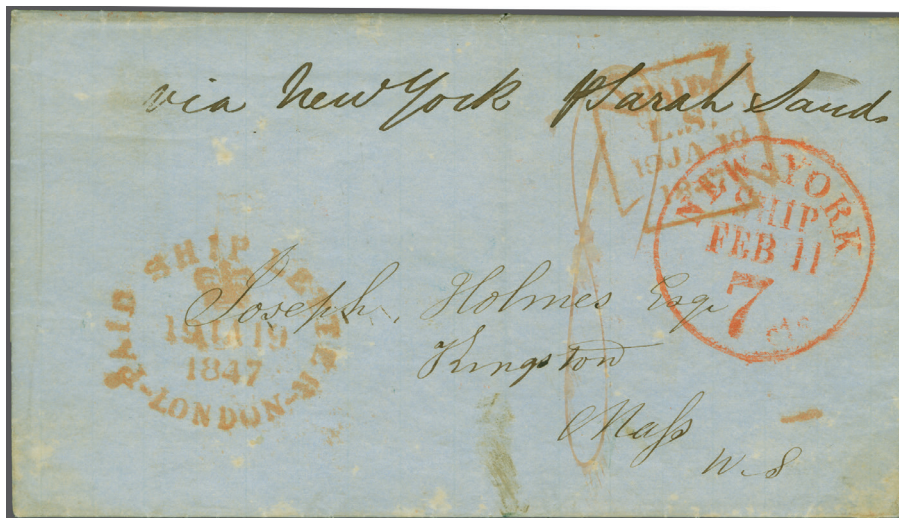 via New York p Sarah Sands
SHIP
L.S.
19 JA 19
1847
NEW-YORK
SHIP
FEB 11
7
cts
PAID SHIP LETTER
19 JA 19
1847
-LONDON-
Joseph Holmes Esqr
Kingston
Mass
U.S